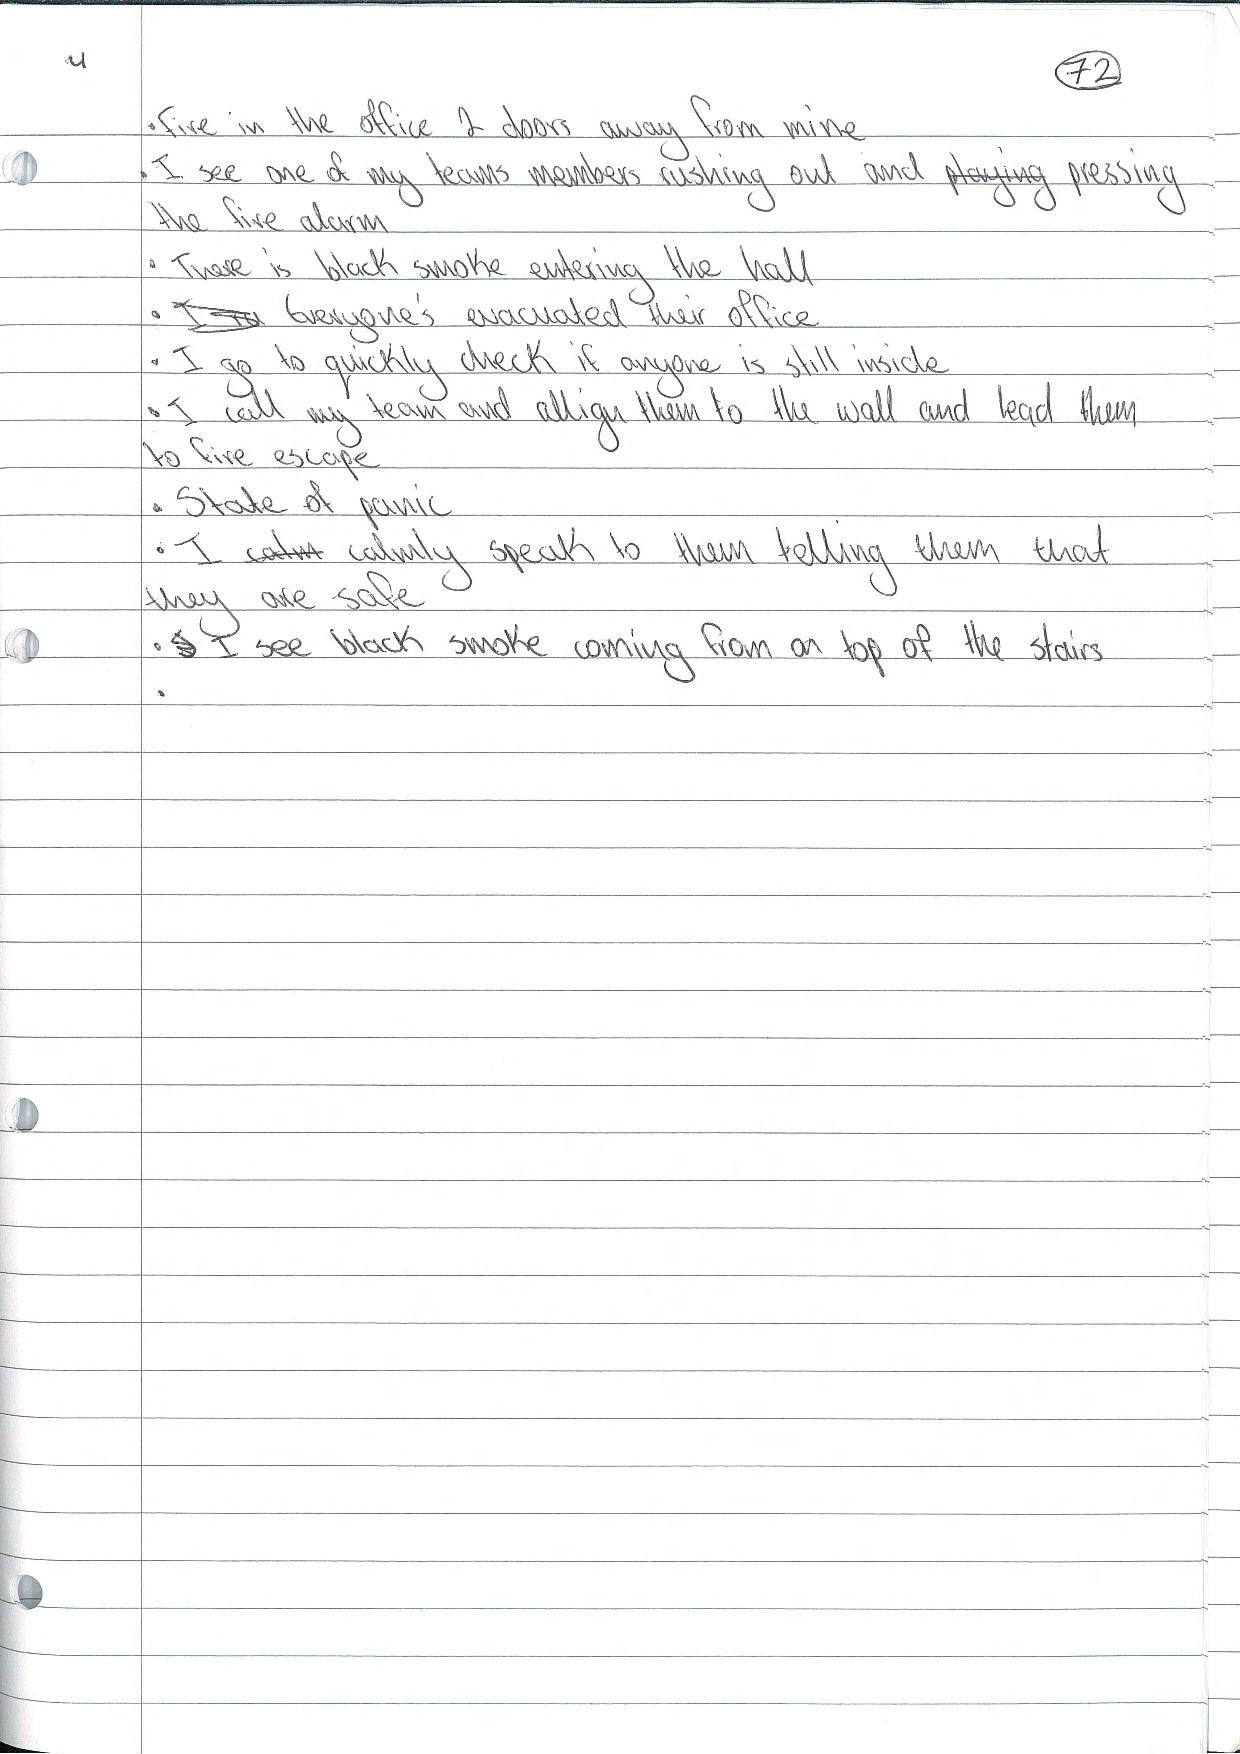 4
72
• Fire in the office 2 doors away from mine
• I see one of my teams members rushing out and playing pressing
the fire alarm
• There is black smoke entering the hall
• I Everyone's evacuated their office
• I go to quickly check if anyone is still inside
• I call my team and allign them to the wall and lead them
to fire escape
• State of panic
• I calm calmly speak to them telling them that
they are safe
• I see black smoke coming from on top of the stairs
•